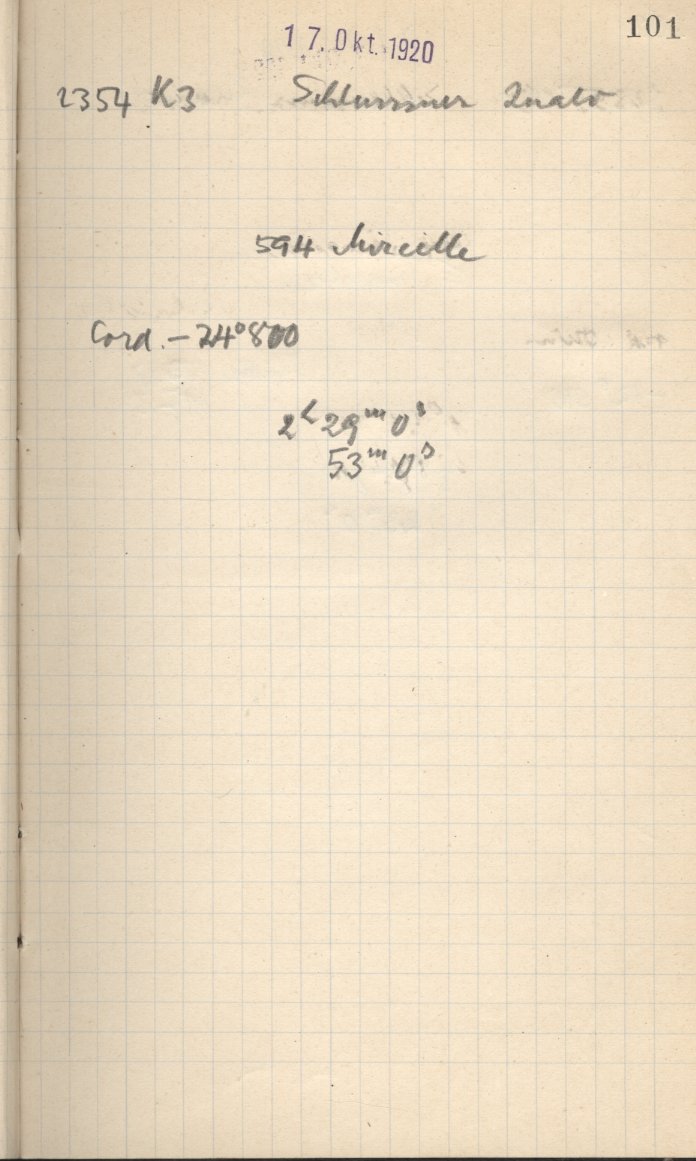 101
17. Okt. 1920
2354 K3 Schleussner
594 Mireille
Cord. -24°800
2h 29m 0s
53m 0s